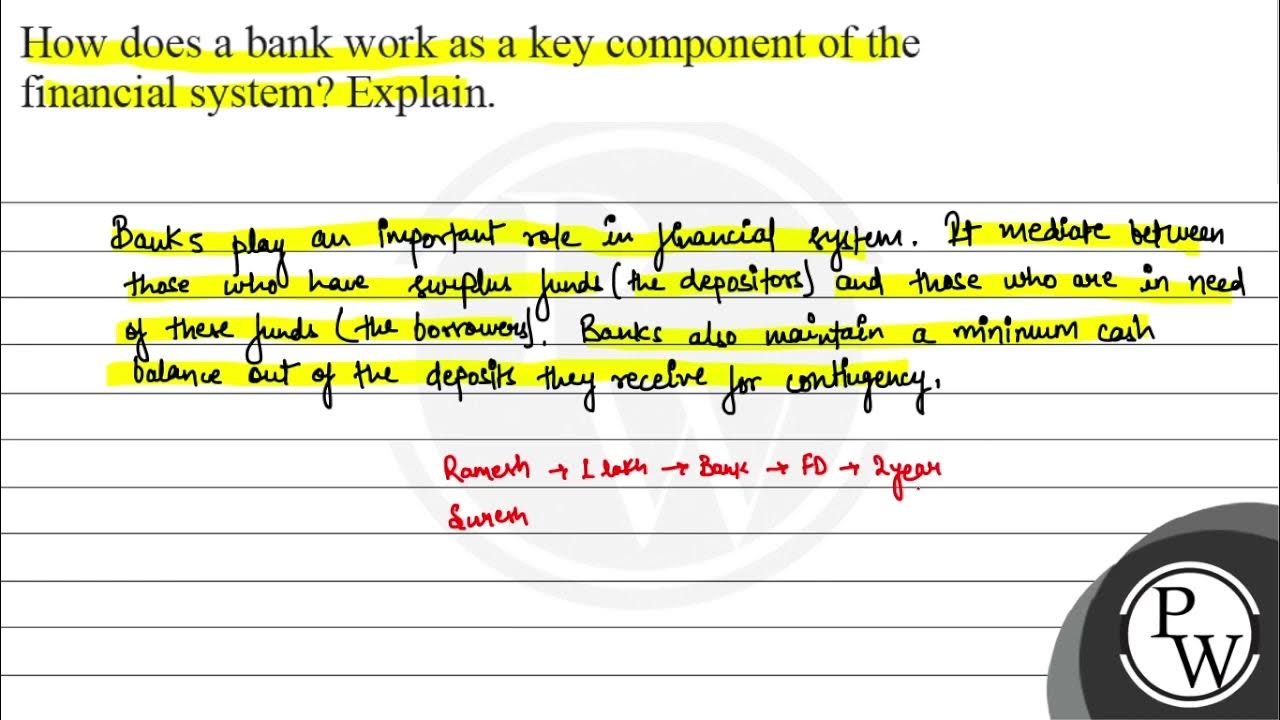 How does a bank work as a key component of the
financial system? Explain.
Banks play an important role in financial system. It mediate between
those who have surplus funds (the depositors) and those who are in need
of these funds (the borrowers). Banks also maintain a minimum cash
balance out of the deposits they receive for contingency.
Ramesh → 1 lakh → Bank → FD → 2 year
Suresh
PW
P
W